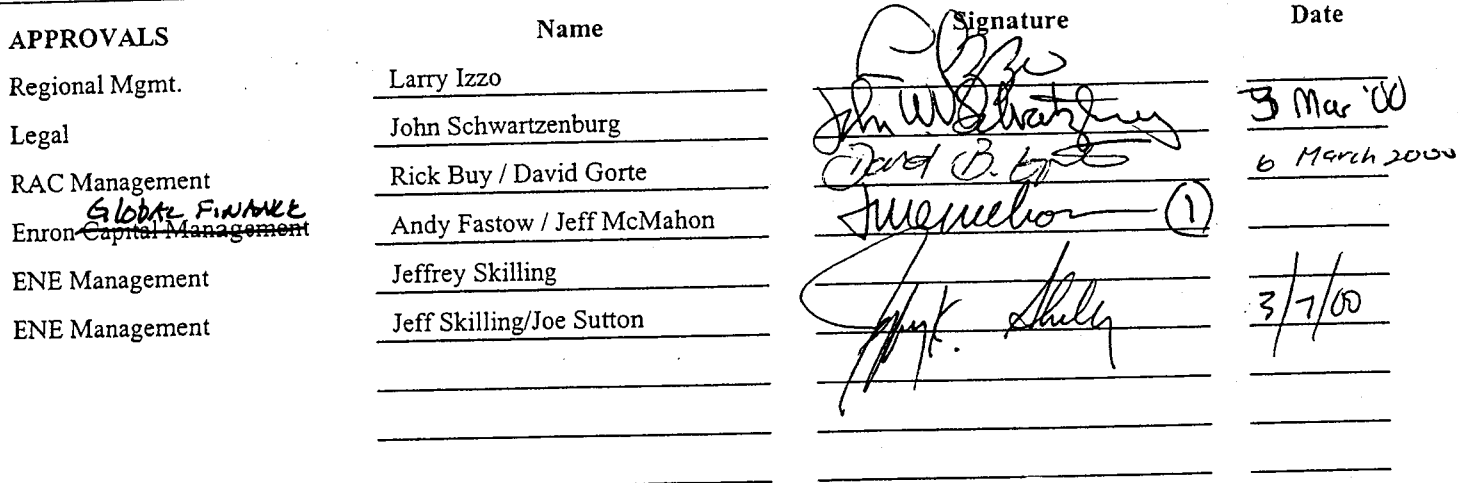 APPROVALS Name Signature Date
Regional Mgmt. Larry Izzo
Legal John Schwartzenburg John W. Schwartzenburg 3 Mar '00
RAC Management Rick Buy / David Gorte David B. Gorte 6 March 2000
GLOBAL FINANCE
Enron Capital Management Andy Fastow / Jeff McMahon JMcMahon 1
ENE Management Jeffrey Skilling
ENE Management Jeff Skilling/Joe Sutton 3/7/00